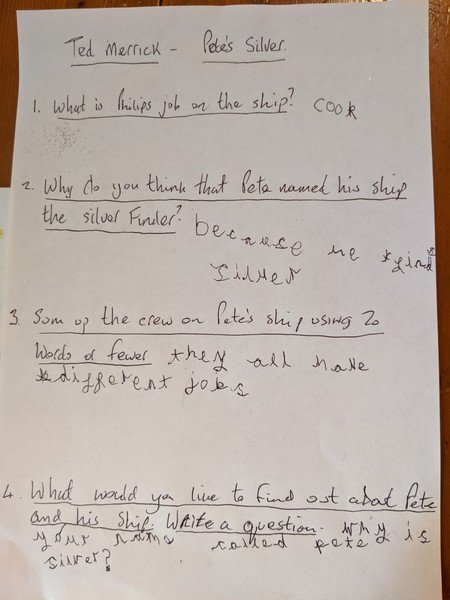 Ted Merrick - Pete's Silver
1. What is Philips job on the ship? cook
2. Why do you think that Pete named his ship
the silver Finder? because he finds
silver
3. Sum up the crew on Pete's ship using 20
words or fewer they all have
different jobs
4. What would you like to find out about Pete
and his ship. Write a question. why is
your name called pete
silver?